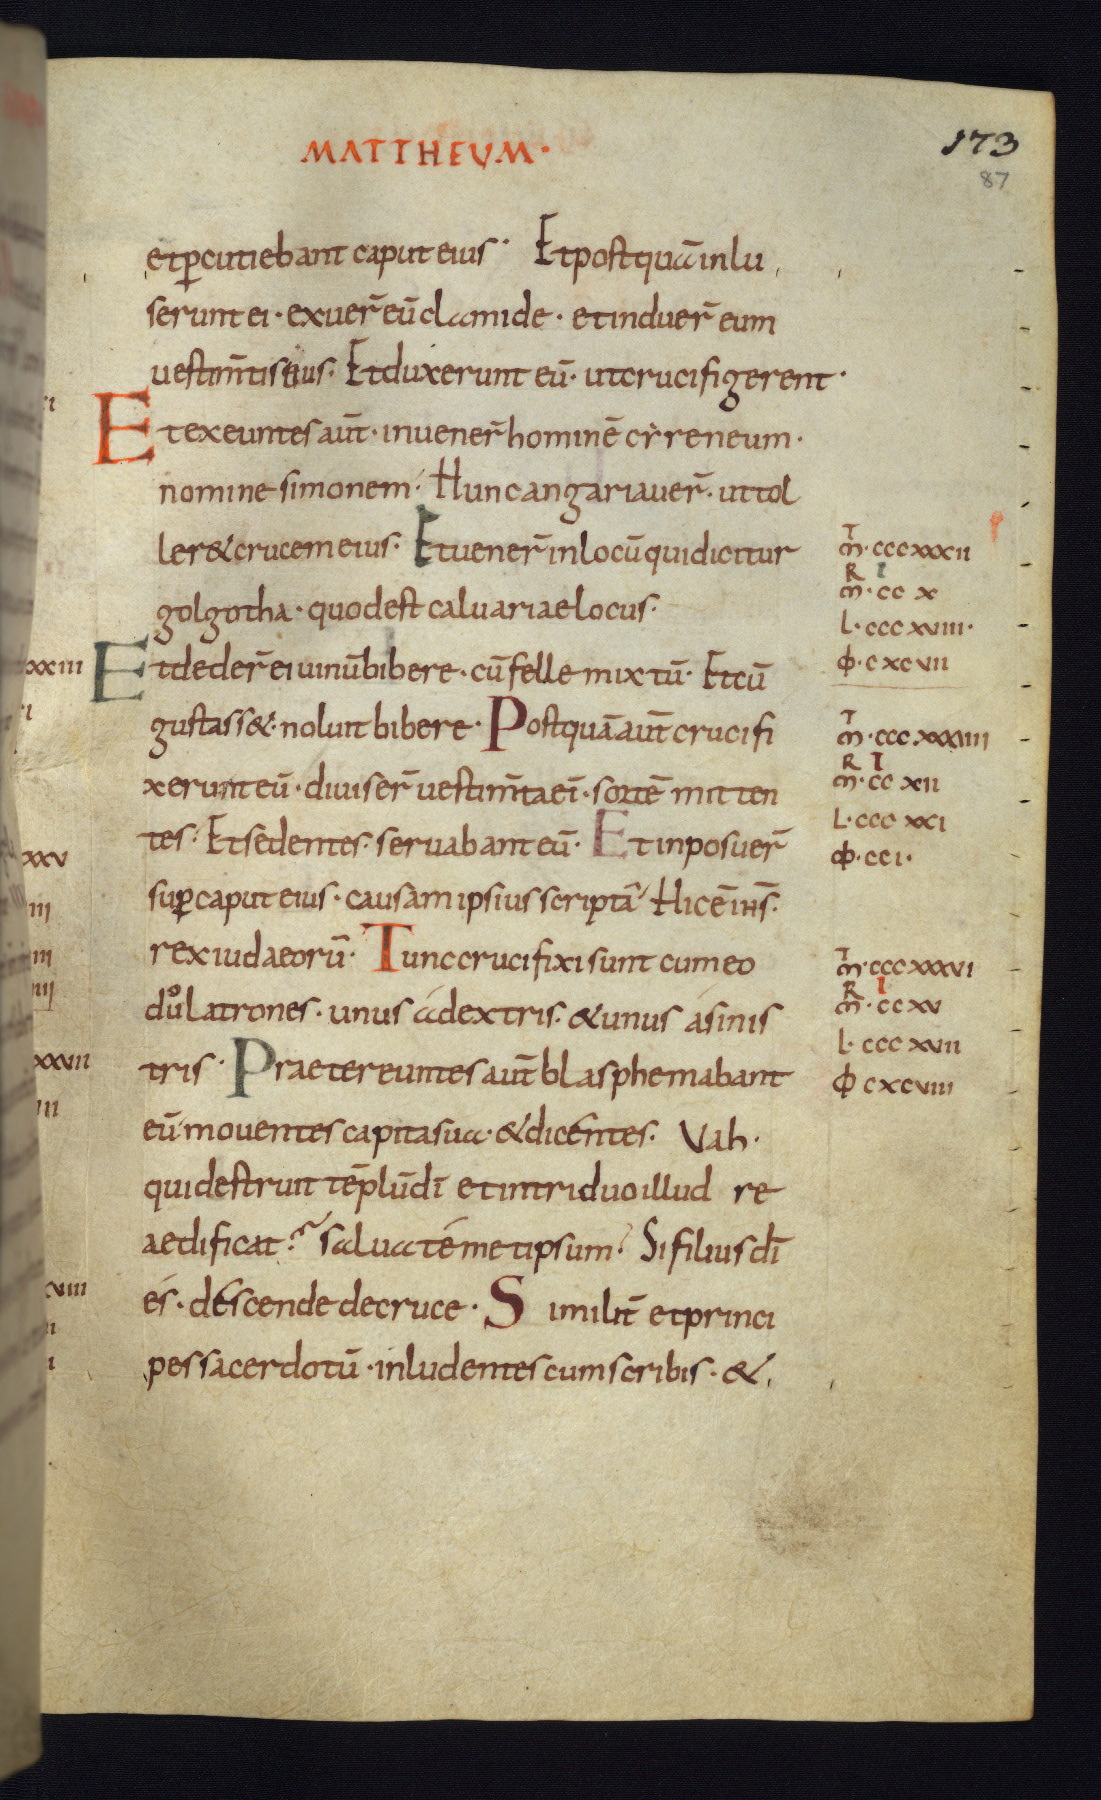 MATTHEUM·
173
87
et p̱cutiebant caput eius· Et postquā inlu
serunt ei· exuer̄ eū clamide· et induer̄ eum
uestim̄tis eius· Et duxerunt eū· ut crucifigerent·
Et exeuntes aut̄· inuener̄ hominē cẏreneum·
nomine simonem· Hunc angariauer̄· ut tol
ler& crucem eius· Et uener̄ in locū qui dicitur
golgotha· quod est caluariae locus·
Et deder̄ ei uinū bibere· cū felle mixtū· Et cū
gustass&· noluit bibere· Postquā aut̄ crucifi
xerunt eū· diuiser̄ uestim̄ta eī· sortē mitten
tes· Et sedentes· seruabant eū· Et inposuer̄
sup̱ caput eius· causam ipsius scriptā· Hic ē ih̄s·
rex iudaeorū· Tunc crucifixi sunt cum eo
duo latrones· unus á dextris· & unus á sinis
tris· Praetereuntes aut̄ blasphemabant
eū mouentes capita sua· & dicentes· Vah·
qui destruit tēplū dī et in triduo illud re
aedificat· salua témetipsum· Si filius dī
és· déscende de cruce· Similit̄ et princi
pes sacerdotū· inludentes cum scribis· &
T
m̄·cccxxxii
R I
m̄·cc x
L·cccxviii·
ф·cxcvii
T
m̄·cccxxxiiii
R I
m̄·cc xii
L·ccc xxi
ф·cci·
T
m̄·cccxxxvi
R I
m̄·cc xv
L·cccxvii
ф cxcviii
xxiii
xxv
iii
iii
iiii
xxvii
iii
xviii